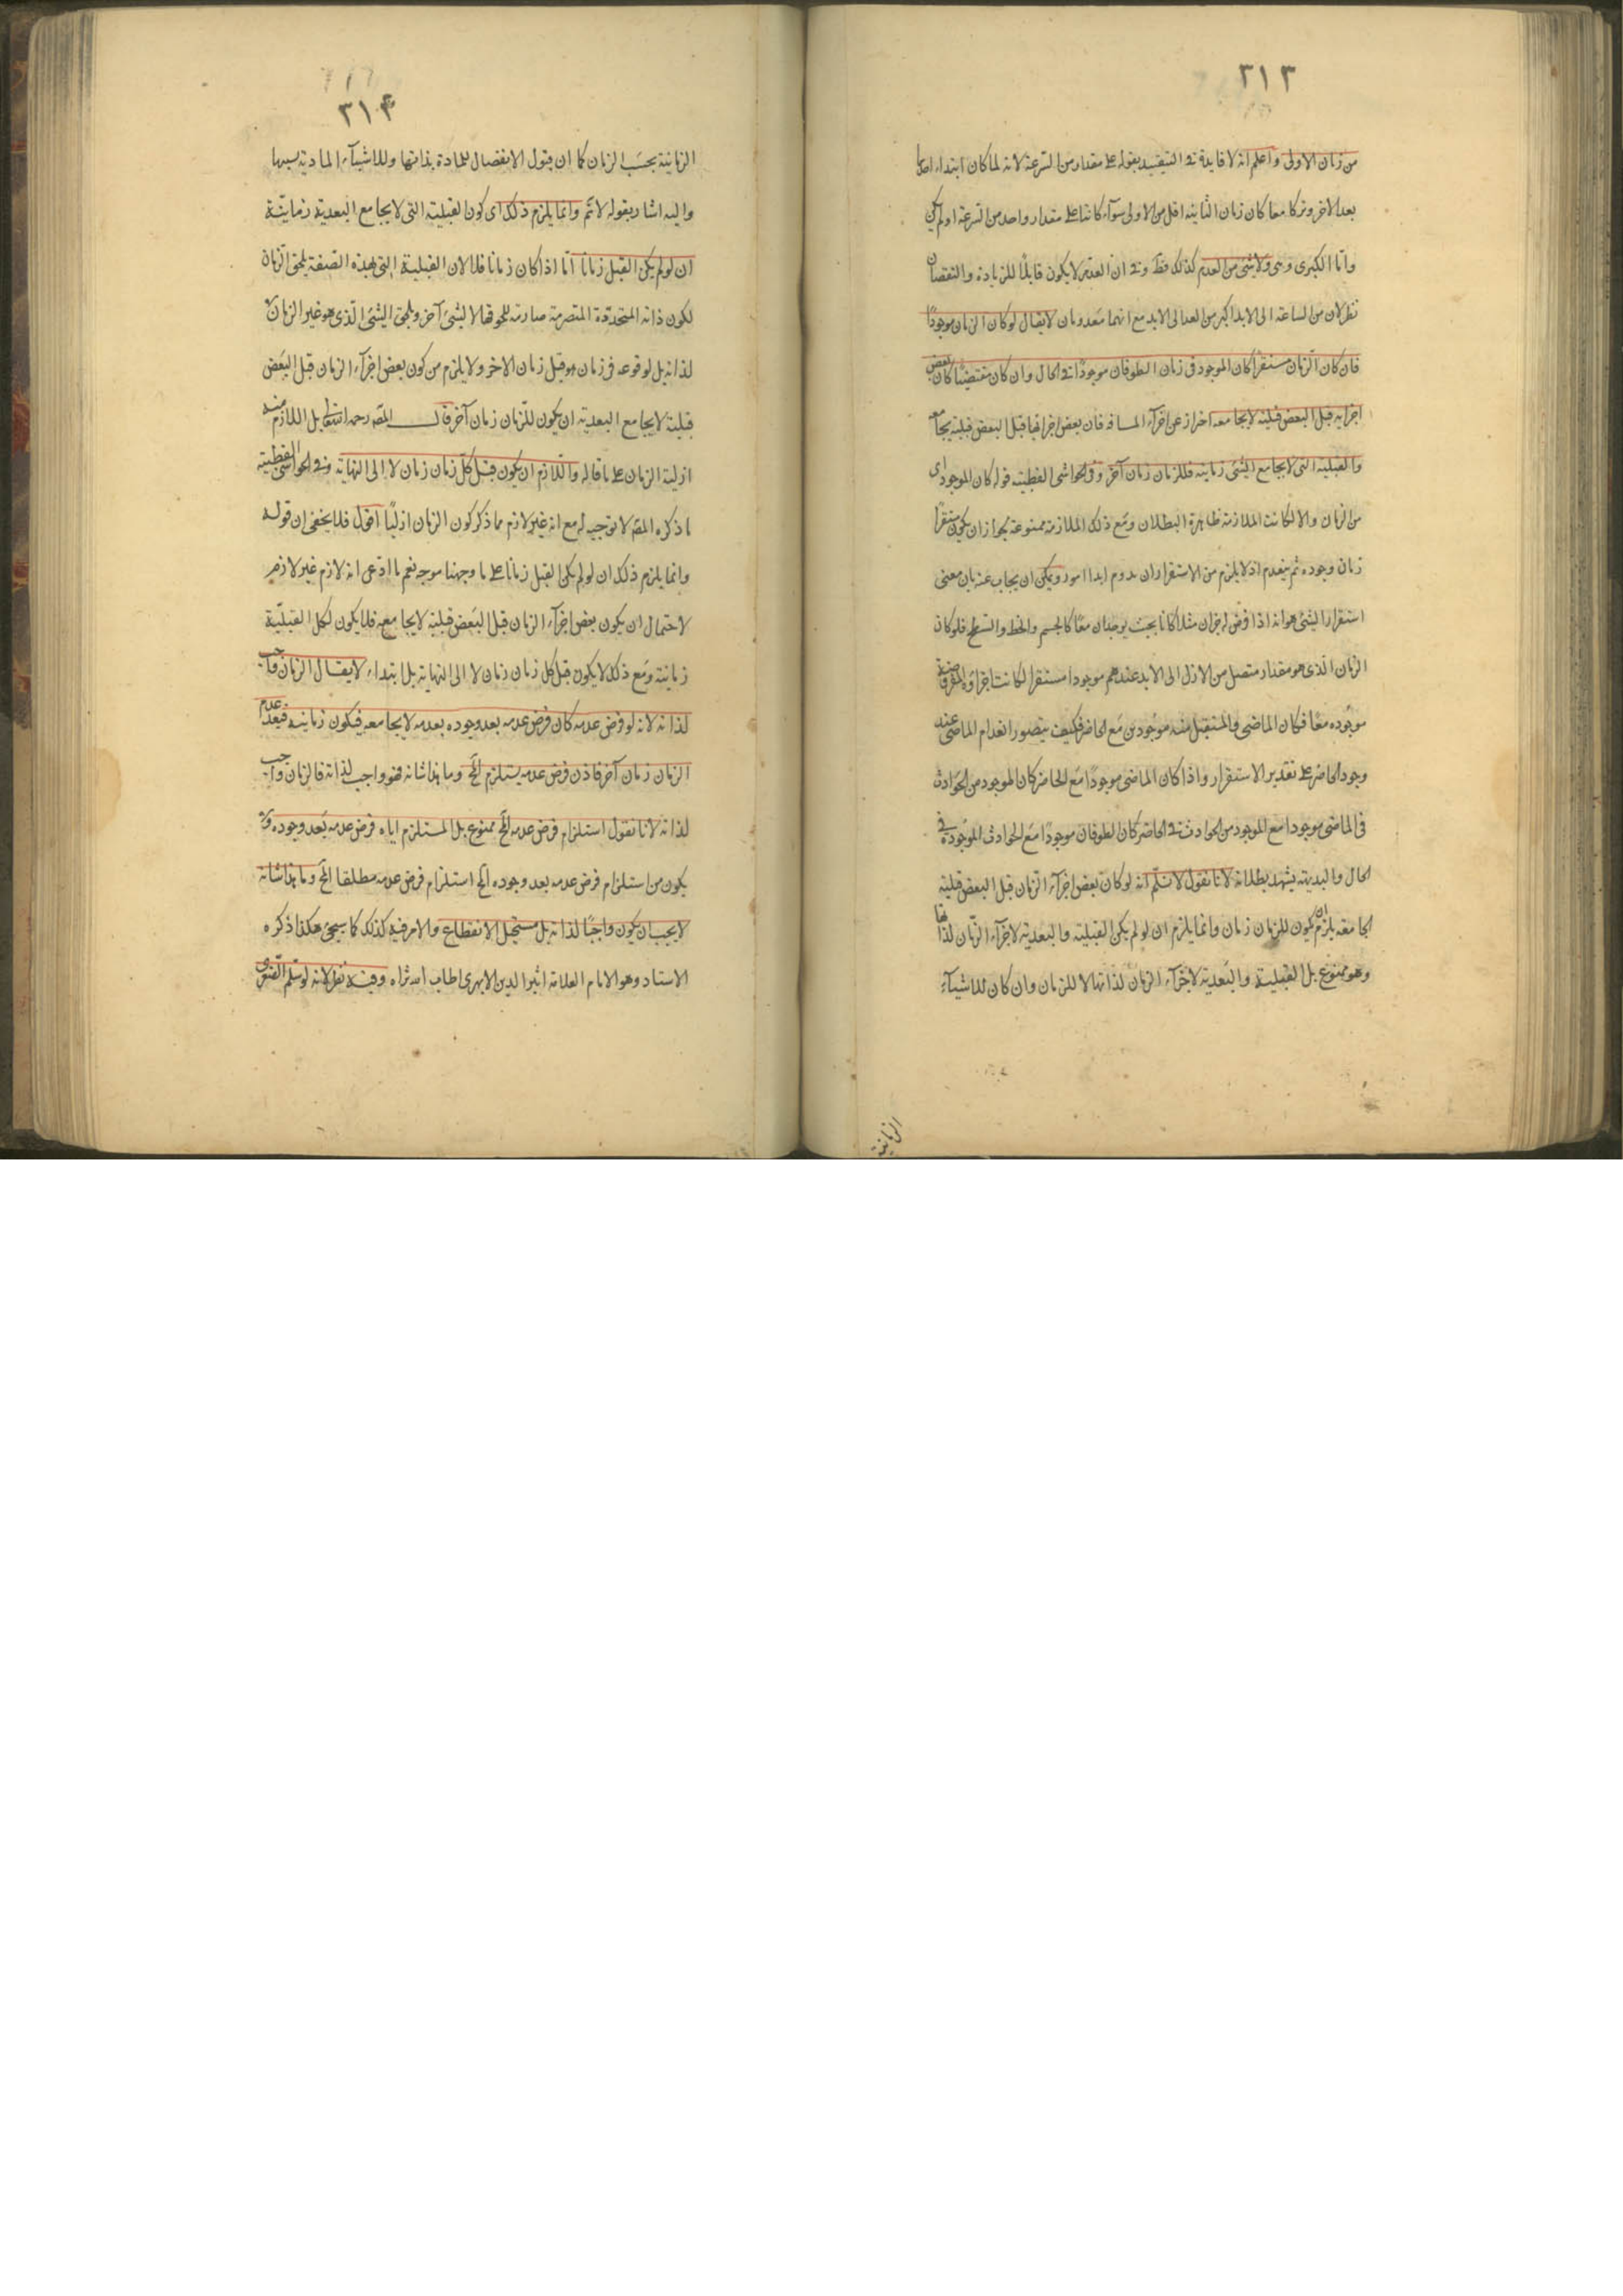 ٣١٣
من زمان الاولى واعلم انه لا فايدة فى التقييد بقوله على مقدار من السرعة لانه لما كان ابتداء احدهما
بعد الاخر وتركا معا كان زمان الثانية اقل من الاولى سوآء كانتا على مقدار واحد من السرعة او لم يكن
واما الكبرى وهى ولا شئ من العدم كذلك فظ وفى ان العدم لا يكون قابلًا للزيادة والنقصان
نظر لان من الساعة الى الابد اكبر من الغد الى الابد مع انهما معدومان لا يقال لو كان الزمان موجودًا
فان كان الزمان مستقرًا كان الموجود فى زمان الطوفان موجودًا فى الحال وان كان متقضيًا كان بعض
اجزايه قبل البعض قبلية لا يجامعه احتراز عن اجزآء المسافة فان بعض اجزائها قبل البعض قبلية يجامع
والقبلية التى لا يجامع الشئ زمانية فللزمان زمان آخر وفى الحواشى القطبية قوله كان الموجود اى
من الزمان والا لكانت الملازمة ظاهرة البطلان ومع ذلك الملازمة ممنوعة بجواز ان يكون مستقرًا
زمان وجوده ثم ينعدم اذ لا يلزم من الاستقرار ان يدوم ابدا امور ويمكن ان يجاب عنه بان معنى
استقرار الشئ هو انه اذا فرض له جزان مثلا كانا بحيث يوجدان معًا كالجسم والخط والسطح فلو كان
الزمان الذى هو مقدار متصل من الازل الى الابد عندهم موجودا مستقرا لكانت اجزاؤه المفروضة
موجوده معًا فكان الماضى والمستقبل منه موجودين مع الحاضر فكيف يتصور انعدام الماضى عند
وجود الحاضر على تقدير الاستقرار واذا كان الماضى موجودًا مع الحاضر كان الموجود من الحوادث
فى الماضى موجودا مع الموجود من الحوادث فى الحاضر كان الطوفان موجودًا مع الحوادث الموجودة فى
الحال والبديهة يشهد ببطلانه لانا نقول لا نسلم انه لو كان بعض اجزآء الزمان قبل البعض قبلية
لا يجامعه يلزم ان يكون للزمان زمان وانما يلزم ان لو لم يكن القبلية والبعدية لاجزآء الزمان لذاتها
وهو ممنوع بل القبلية والبعدية لاجزآء الزمان لذاتها لا للزمان وان كان للاشيآء
الزمانية
٣١۴
الزمانية بحسب الزمان كما ان قبول الانفصال للمادة بذاتها وللاشيآء المادية بسببها
واليه اشار بقوله لا تم وانما يلزم ذلك اى كون القبلية التى لا يجامع البعدية زمانية
ان لو لم يكن القبل زمانا اما اذا كان زمانا فلا لان القبلية التى بهذه الصفة يلحق الزمان
لكون ذاته المتجددة المتصرمة صارمة للحوقها لا لشئ آخر ويلحق الشئ الذى هو غير الزمان لا
لذاته بل لوقوعه فى زمان هو قبل زمان الاخر ولا يلزم من كون بعض اجزآء الزمان قبل البعض
قبلية لا يجامع البعدية ان يكون للزمان زمان آخر قال المصه رحمه الله تعالى بل اللازم منه
ازلية الزمان على ما قاله واللازم ان يكون قبل كل زمان زمان لا الى النهاية وفى الحواشى القطبية
ما ذكره المصه لا توجيه له مع انه غير لازم مما ذكر كون الزمان ازليًا اقول فلا يخفى ان قوله
وانما يلزم ذلك ان لو لم يكن القبل زمانا على ما وجهنا موجه نعم ما ادعى انه لازم غير لازم
لاحتمال ان يكون بعض اجزآء الزمان قبل البعض قبلية لا يجامعه فلا يكون لكل القبلية
زمانية ومع ذلك لا يكون قبل كل زمان زمان لا الى النهاية بل ابتداء لا يقال الزمان واجب
لذاته لانه لو فرض عدمه كان فرض عدمه بعد وجوده بعدية لا يجامعه فيكون زمانية فبعد عدم
الزمان زمان آخر فاذن فرض عدمه يستلزم المح وما هذا شانه فهو واجب لذاته فالزمان واجب
لذاته لانا نقول استلزام فرض عدمه المح ممنوع بل المستلزم اياه فرض عدمه بعد وجوده ولا
يكون من استلزام فرض عدمه بعد وجوده المح استلزام فرض عدمه مطلقا المح وما هذا شانه
لا يجب ان يكون واجبًا لذاته بل مستحيل الانقطاع والامر فيه كذلك كما سيجئ هكذا ذكره
الاستاد وهو الامام العلامة اثير الدين الابهرى اطاب الله ثراه وفيه نظر لانه لو سلم